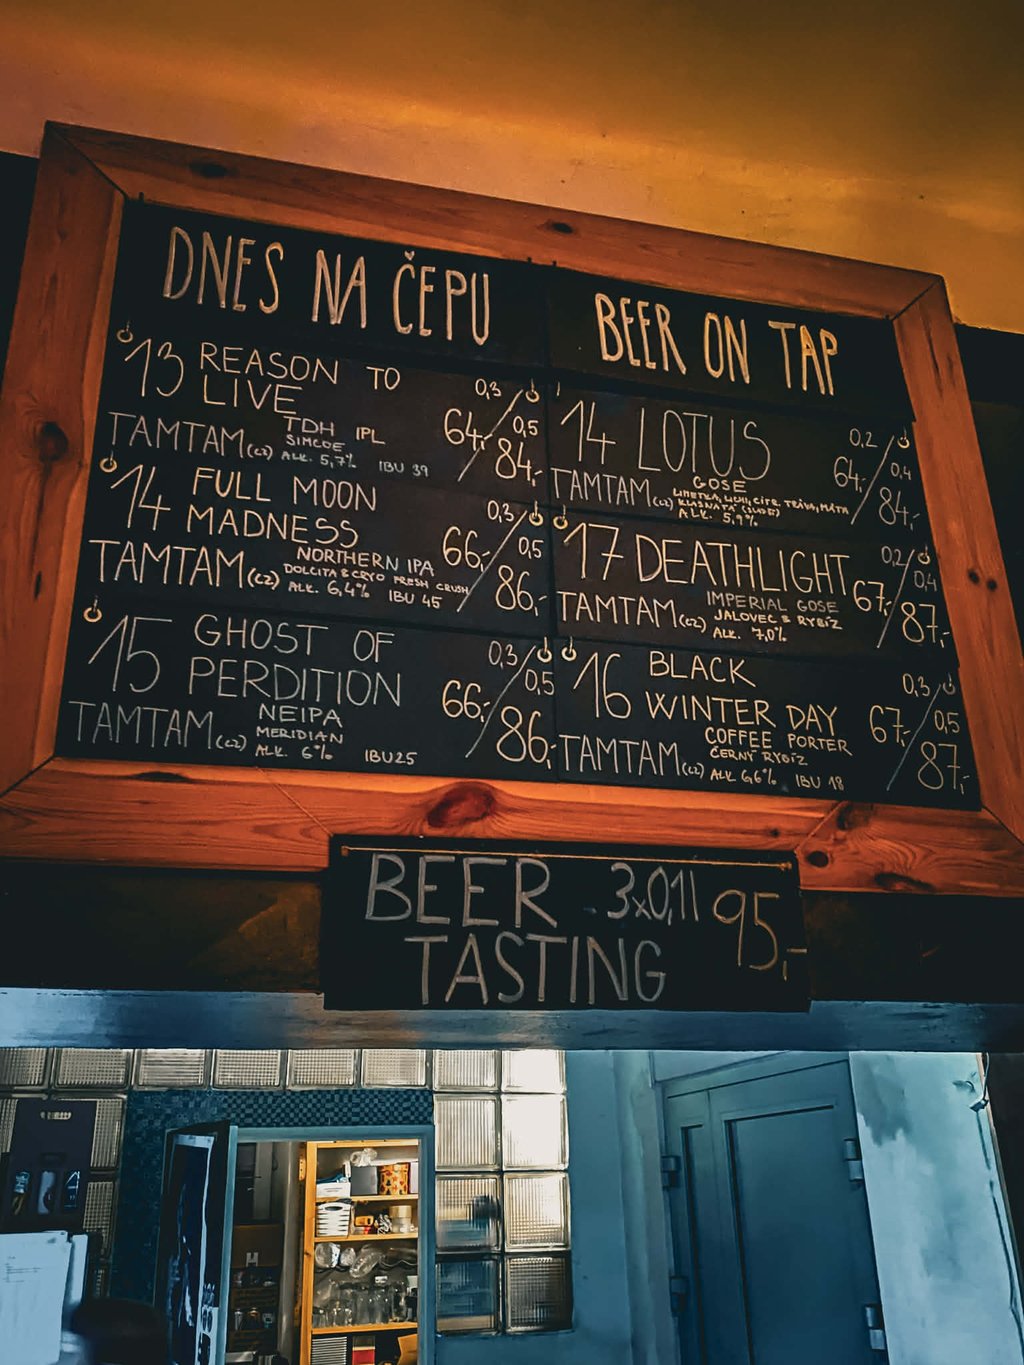 DNES NA ČEPU
13 REASON TO
LIVE
0,3
64,-
0,5
84,-
TAMTAM (CZ)
TDH IPL
SIMCOE
ALK. 5,7% IBU 39
14 FULL MOON
MADNESS
0,3
66,-
0,5
86,-
TAMTAM (CZ)
NORTHERN IPA
DOLCITA & CRYO FRESH CRUSH
ALK. 6,4% IBU 45
15 GHOST OF
PERDITION
0,3
66,-
0,5
86,-
TAMTAM (CZ)
NEIPA
MERIDIAN
ALK. 6% IBU 25
BEER ON TAP
14 LOTUS
0,2
64,-
0,4
84,-
TAMTAM (CZ)
GOSE
LIMETKA, CITR. TRÁVA, MÁTA
KLASNATÁ
ALK. 5,9%
17 DEATHLIGHT
0,2
67,-
0,4
87,-
TAMTAM (CZ)
IMPERIAL GOSE
JALOVEC & RYBÍZ
ALK. 7,0%
16 BLACK
WINTER DAY
0,3
67,-
0,5
87,-
TAMTAM (CZ)
COFFEE PORTER
ČERNÝ RYBÍZ
ALK 6,6% IBU 18
BEER - 3x0,1l 95,-
TASTING